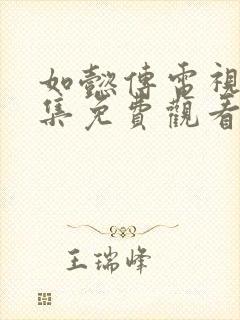 如懿傳電視
集免費觀看
王瑞峰